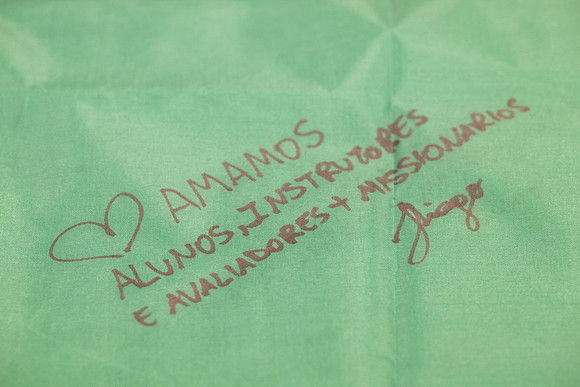 AMAMOS
ALUNOS, INSTRUTORES
E AVALIADORES + MISSIONARIOS
Thiago